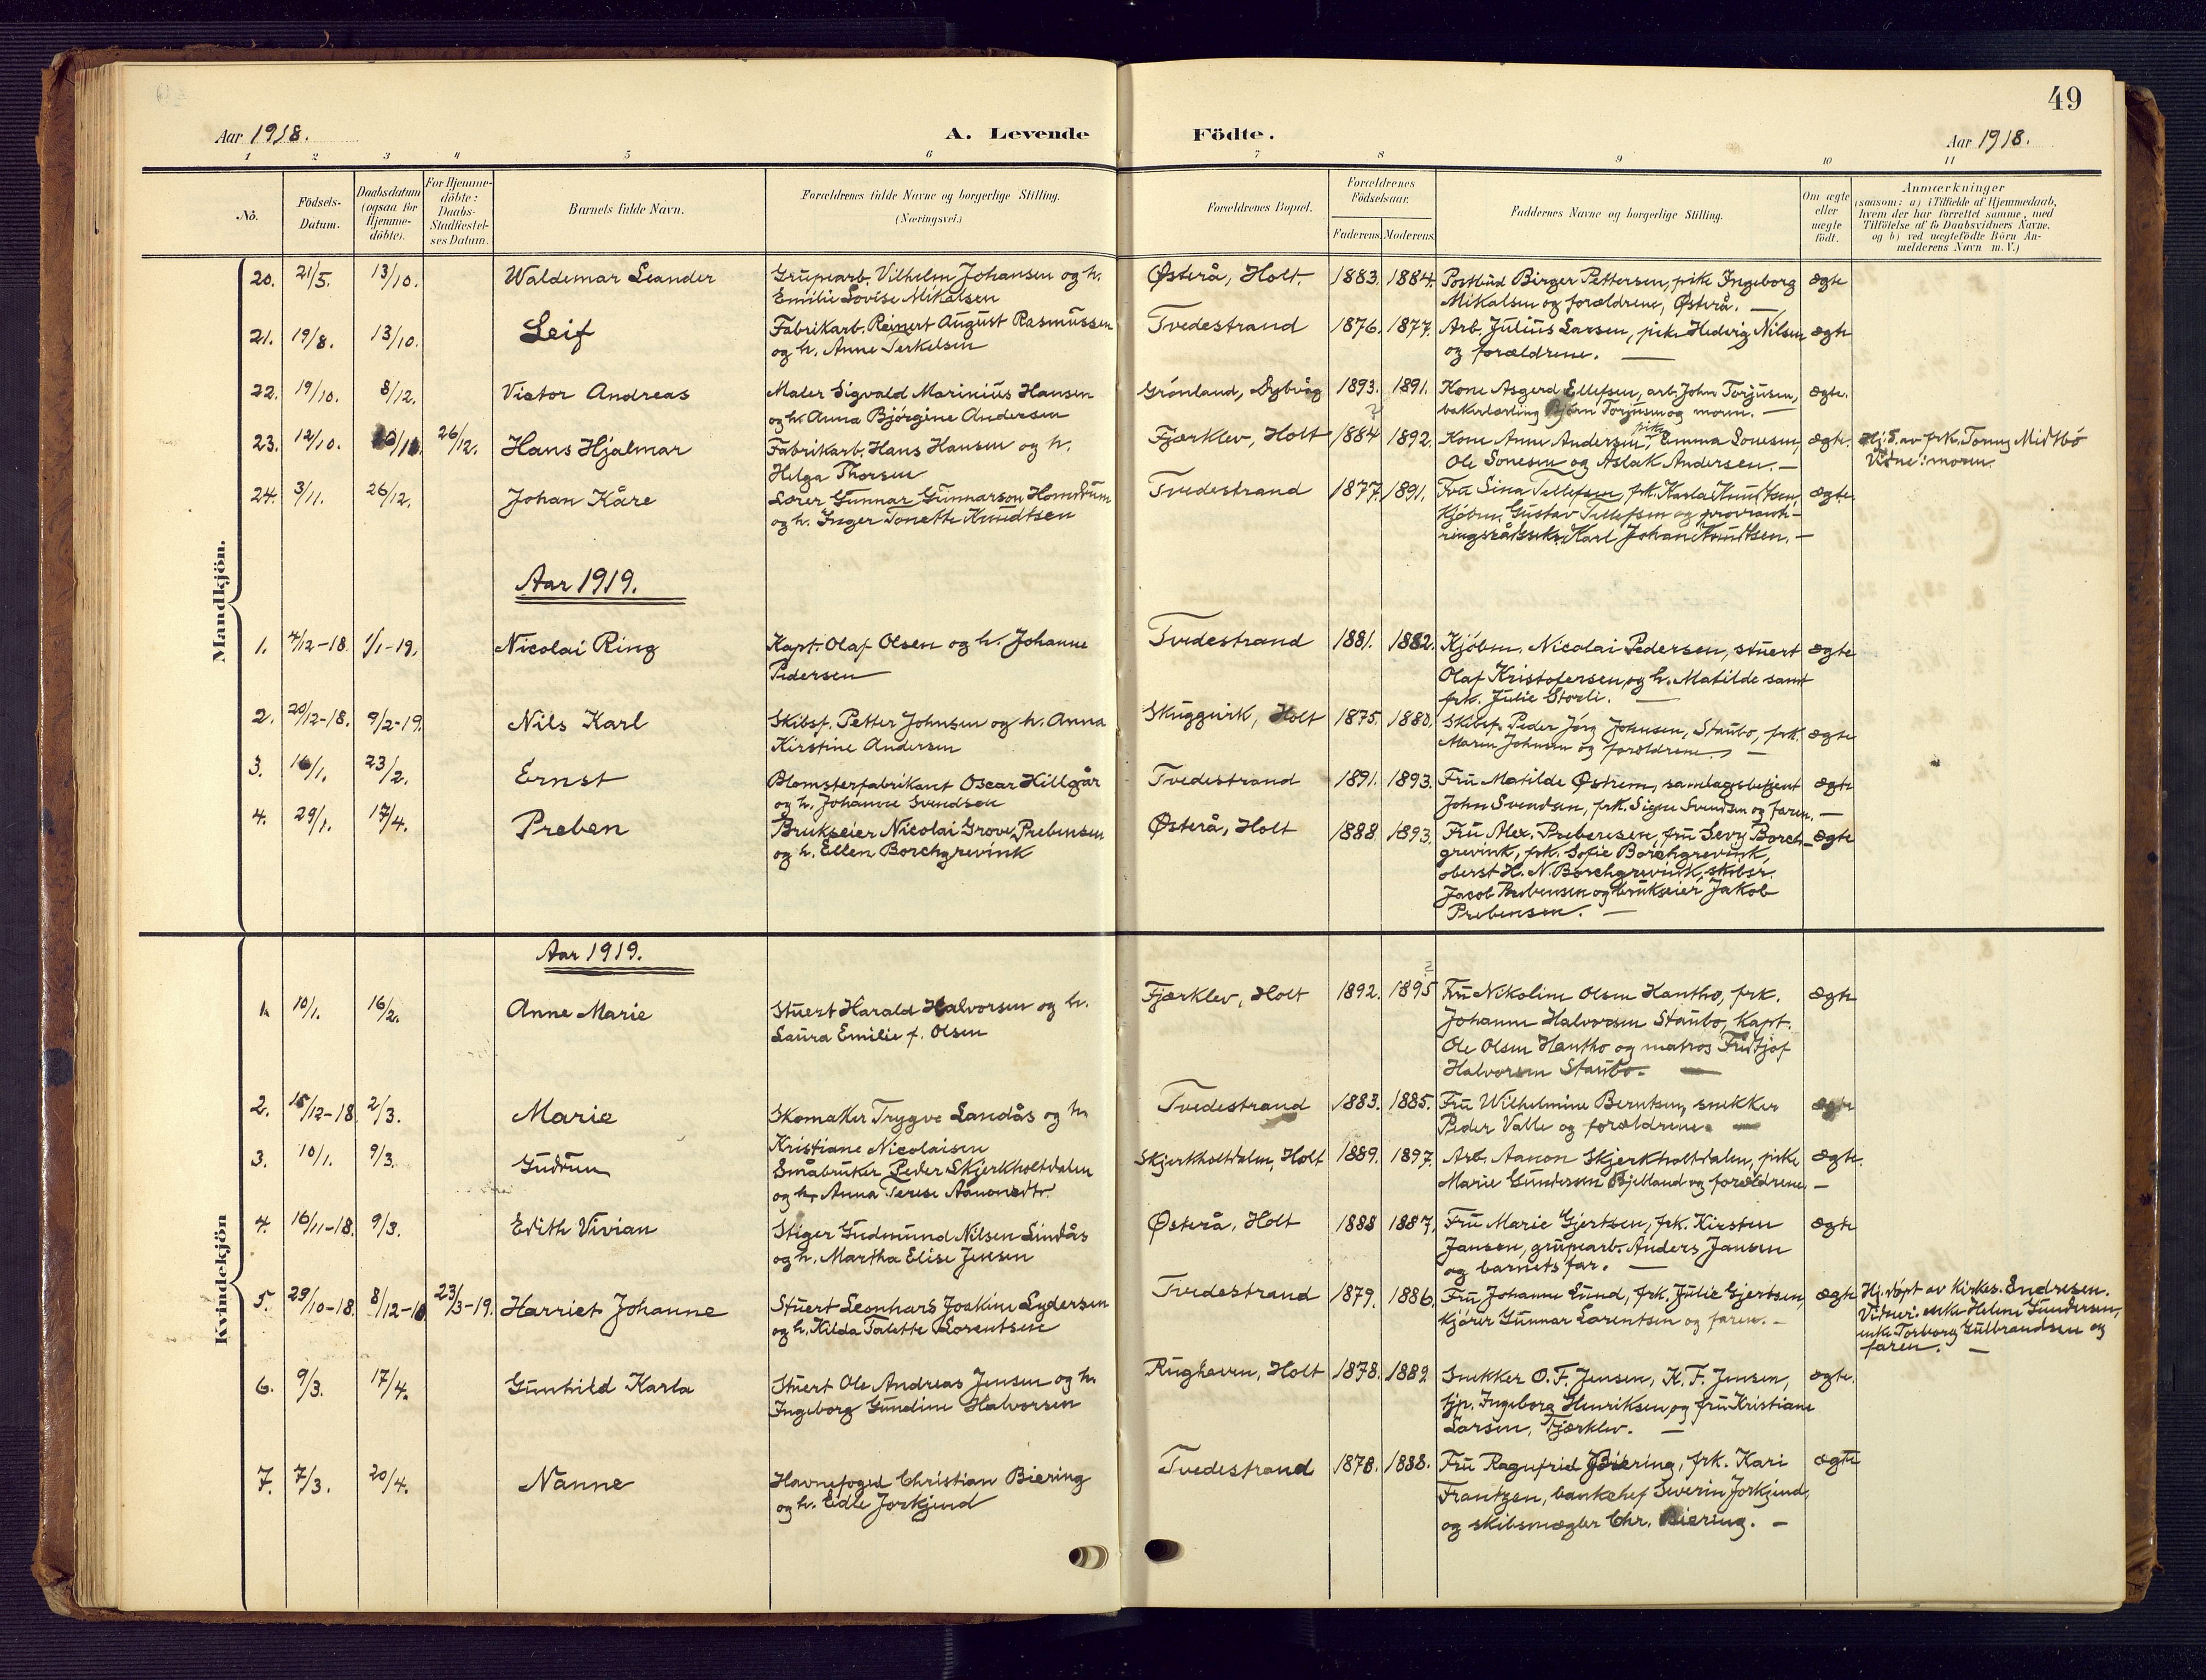 49
Aar 1918.
A. Levende Födte.
Aar 1918.
1 2 3 4 5 6 7 8 9 10 11
Nö.
Födsels-
Datum.
Daabsdatum
(ogsaa for
Hjemme-
döbte).
For Hjemme-
döbte:
Daabs-
Stadfæstel-
ses Datum.
Barnets fulde Navn.
Forældrenes fulde Navne og borgerlige Stilling.
(Næringsvei.)
Forældrenes Bopæl.
Forældrenes
Födselsaar.
Faderens. Moderens.
Faddernes Navne og borgerlige Stilling.
Om ægte
eller
uægte
födt.
Anmærkninger
(saasom: a) i Tilfælde af Hjemmedaab,
hvem der har forrettet samme, med
Tilföielse af to Daabsvidners Navne,
og b) ved uægtefödte Börn An-
melderens Navn m. V.)
Mandkjön.
20. 21/5. 13/10. Waldemar Leander Grubearb. Vilhelm Johansen og h. Østerå, Holt. 1883. 1884. Postbud Birger Pettersen, pike Ingeborg ægte
Emilie Lovise Mikalsen Mikalsen og forældrene, Østerå. —
21. 19/8. 13/10. Leif Fabrikarb. Reinert August Rasmussen Tvedestrand 1876. 1877. Arb. Julius Larsen, pike Hedvig Nilsen ægte
og h. Anne Terkelsen og forældrene. —
22. 19/10. 8/12. Victor Andreas Maler Sigvald Marinius Hansen Grönland, Dybvåg 1893. 1891. Kone Asgerd Ellefsen, arb. John Torjusen, ægte.
og h. Anna Bjørgine Andersen bakerlærling Bjørn Torjusen og moren. —
23. 12/10. 26/12. Hans Hjalmar Fabrikarb. Hans Hansen og h. Fjærklev, Holt 1884 ? 1892. Kone Anne Andersen, pike Emma Sonesen, ægte. Hj. d. av frk. Tonny Midtbö
Helga Thorsen Ole Sonesen og Aslak Andersen. — Vidne: moren.
24. 3/11. 26/12. Johan Kåre Lærer Gunnar Gunnarson Homdrum Tvedestrand 1877. 1891. Fru Sina Tellefsen, frk. Karla Knudtsen, ægte.
og h. Inger Tonette Knudtsen Kjöbm. Gustav Tellefsen og provianti-
ringsrådssekr. Karl Johan Knudtsen. —
Aar 1919.
1. 4/12-18. 1/1-19. Nicolai Ring Kapt. Olaf Olsen og h. Johanne Tvedestrand 1881. 1882. Kjöbm. Nicolai Pedersen, stuert ægte
Pedersen Olaf Kristofersen og h. Matilde samt
frk. Julie Storli. —
2. 20/12-18. 9/2-19. Nils Karl Skibsf. Petter Johnsen og h. Anna Skuggvik, Holt 1875. 1880. Skibsf. Peder Jörg Johnsen, Staubo, frk. ægte
Kirstine Andersen Maren Johnsen og forældrene. —
3. 23/2. Ernst Blomsterfabrikant Oscar Hillgår Tvedestrand 1891. 1893. Fru Matilde Østrem, samlagsbetjent ægte
og h. Johanne Svendsen John Svendsen, frk. Signe Svendsen og faren. —
4. 29/1. 17/4. Preben Brukseier Nicolai Grove Prebensen Østerå, Holt 1888 1893. Fru Alex. Prebensen, fru Levy Borch- ægte
og h. Ellen Borchgrevink grevink, frk. Sofie Borchgrevink,
oberst H. N. Borchgrevink, skibsr.
Jacob Prebensen og brukseier Jakob
Prebensen. —
Kvindekjön
Aar 1919.
1. 10/1. 16/2. Anne Marie Stuert Harald Halvorsen og h. Fjærklev, Holt 1892. 1895 ? Fru Nikoline Olsen Hantho, frk. ægte
Laura Emilie f. Olsen Johanne Halvorsen Staubo, Kapt.
Ole Olsen Hantho og matros Fridtjof
Halvorsen Staubo. —
2. 15/12-18. 2/3. Marie Skomaker Trygve Landås og h. Tvedestrand 1883. 1885. Fru Wilhelmine Berntsen, snekker ægte
Kristiane Nicolaisen Peder Valle og forældrene. —
3. 10/1. 9/3. Gudrun Småbruker Peder Skjerkholtdalen Skjerkholtdalen, Holt 1889. 1897. Arb. Aanon Skjerkholtdalen, pike ægte.
og h. Anna Terese Aanonsdtr. Marie Gundersen Bjelland og forældrene. —
4. 16/11-18. 9/3. Edith Vivian Stiger Gudmund Nilsen Lindås Østerå, Holt 1888 1887. Fru Marie Gjertsen, frk. Kirsten ægte
og h. Martha Elise Jensen Jansen, grubearb. Anders Jansen
og barnets far. —
5. 29/10-18. 8/12-18 23/3-19. Harriet Johanne Stuert Leonhard Joakim Lydersen Tvedestrand 1879. 1886. Fru Johanne Lund, frk. Julie Gjertsen, ægte Hj. döpt av Kirkes. Endresen.
og h. Hilda Talette Lorentsen kjörer Gunnar Lorentsen og faren. — Vidner: enke Helene Gundersen,
enke Torborg Gulbrandsen og
faren. —
6. 9/3. 17/4. Gunhild Karla Stuert Ole Andreas Jensen og h. Rughaven, Holt 1878. 1882 Snekker O. F. Jensen, K. F. Jensen, ægte.
Ingeborg Gundine Halvorsen tjp. Ingeborg Henriksen og fru Kristiane
Larsen, Fjærklev. —
7. 7/3. 20/4. Nanne Havnefoged Christian Biering Tvedestrand 1878. 1888. Fru Ragnfrid Biering, frk. Kari ægte
og h. Edle Jorkjend Frantzen, bankchef Severin Jorkjend,
og skibsmægler Chr. Biering. —